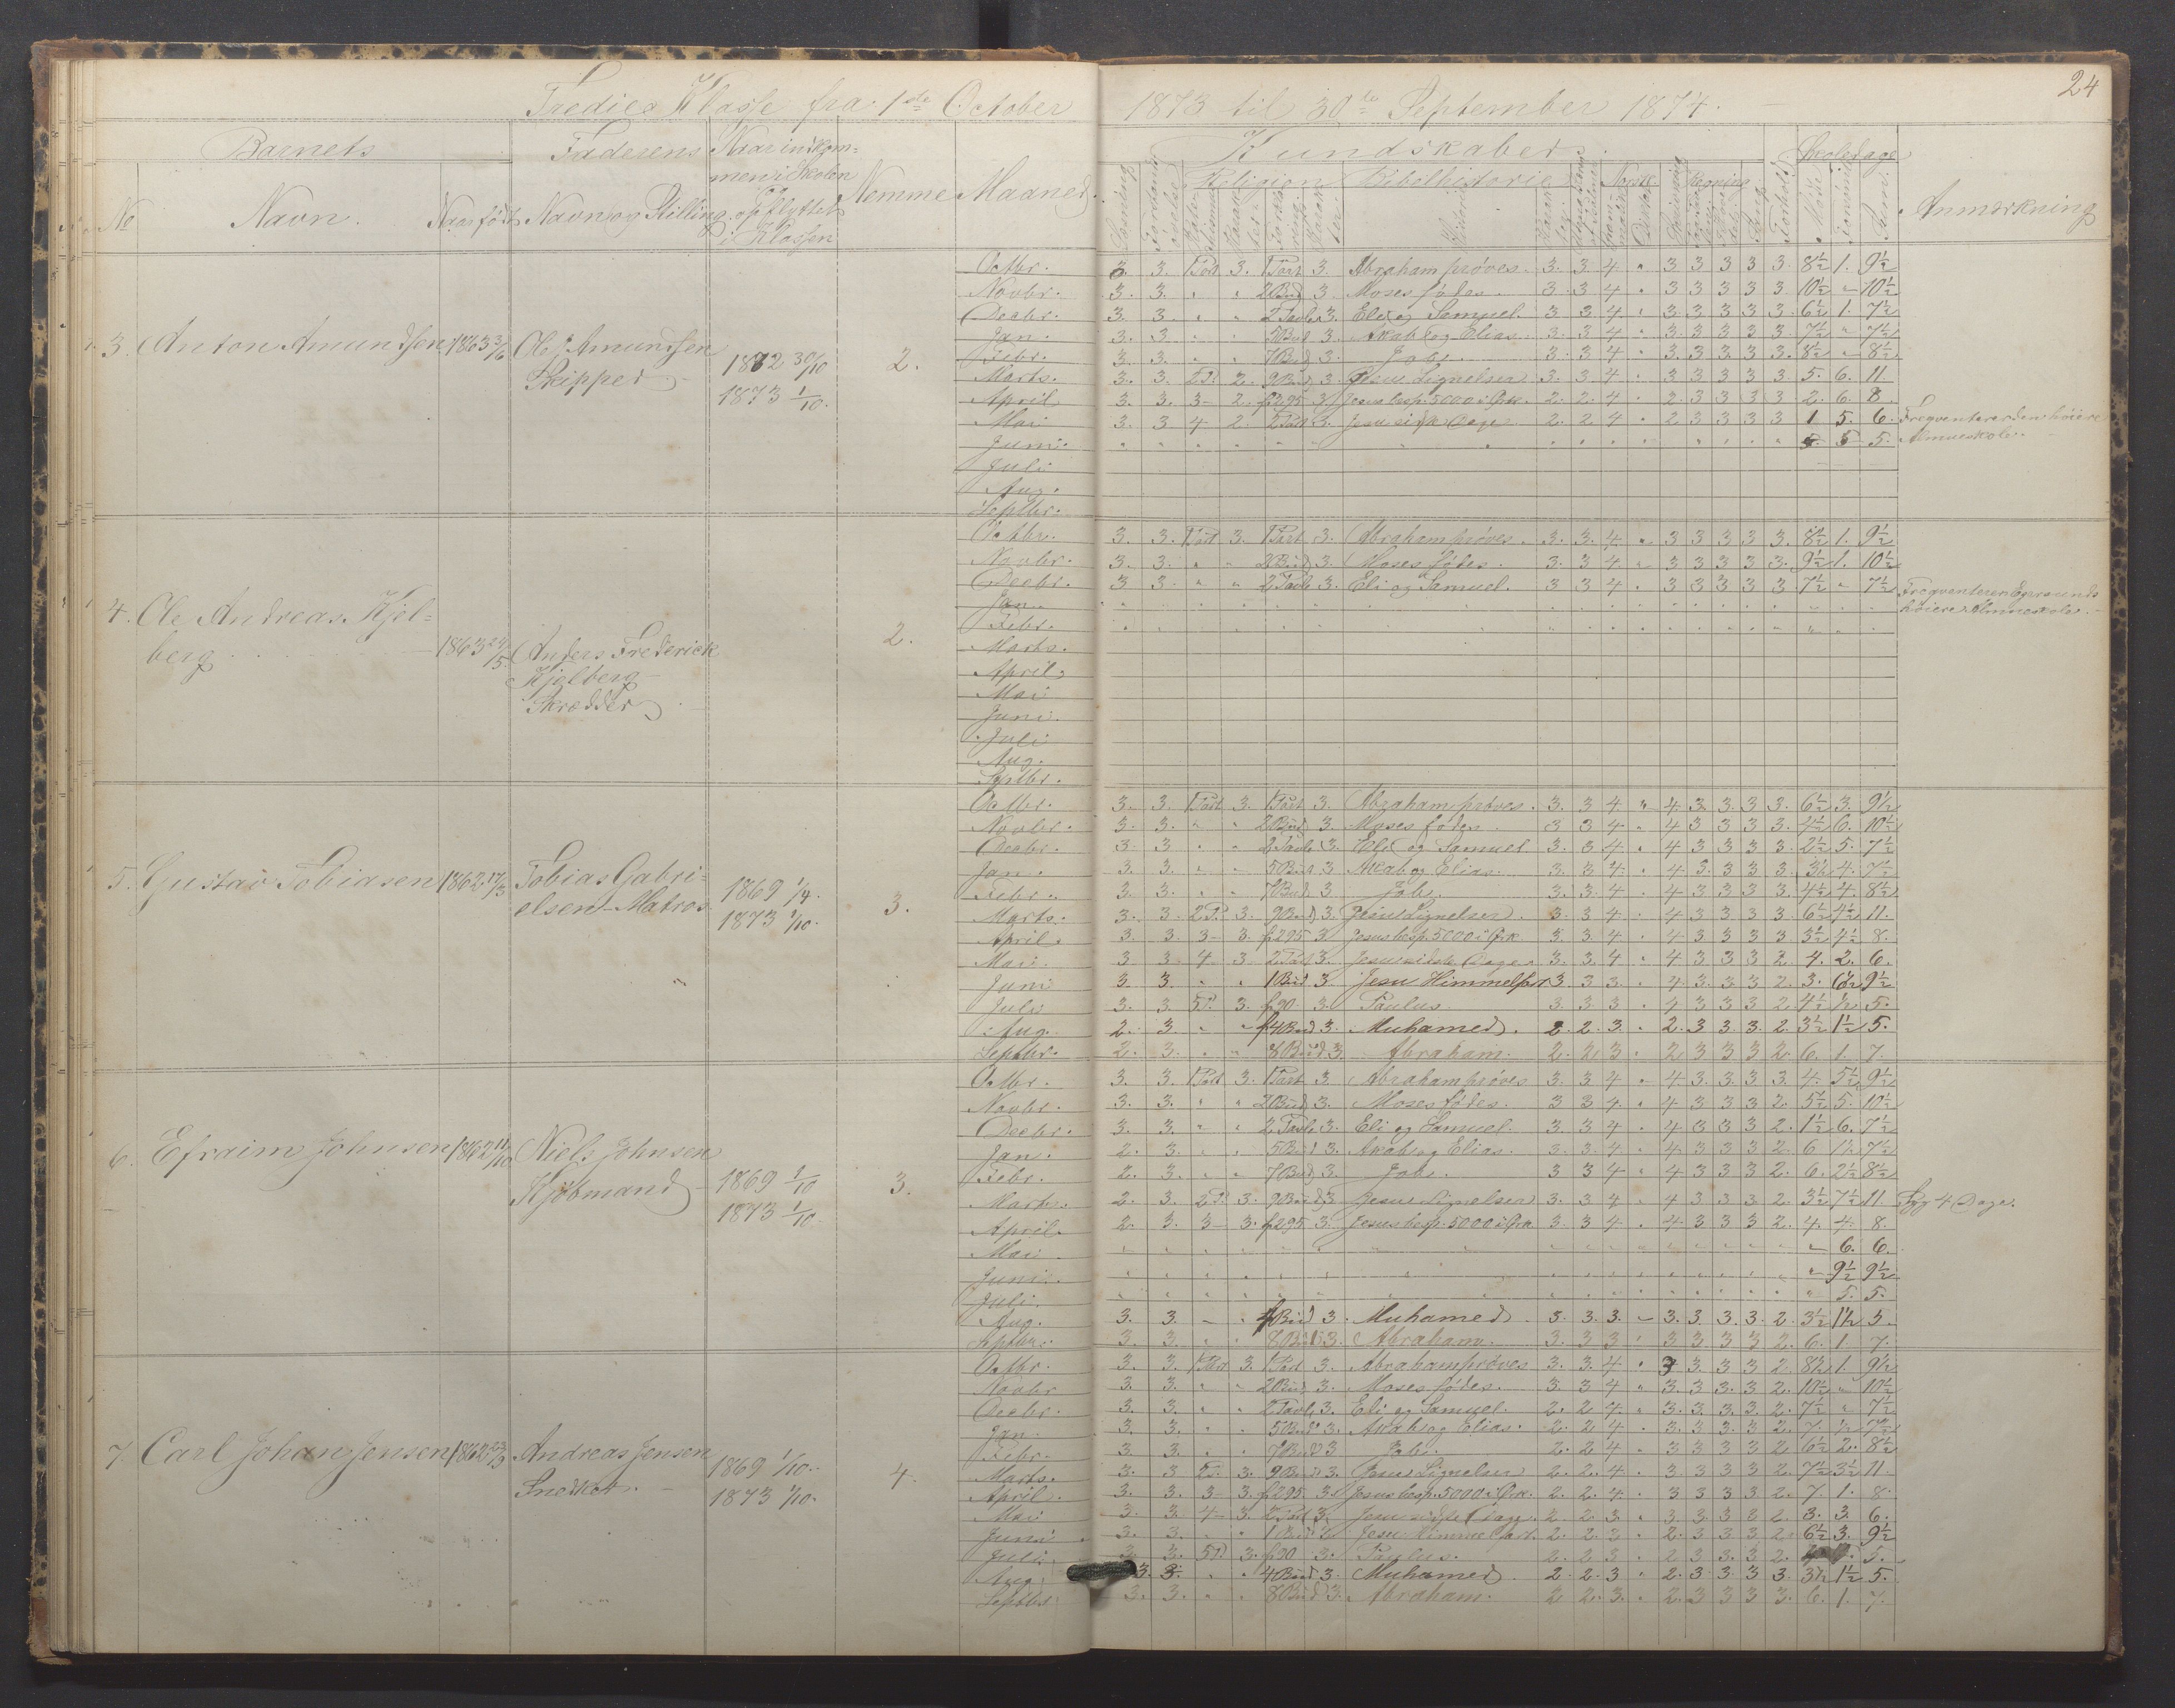 24
Tredies Klasse fra 1ste October 1873 til 30te September 1874.
Barnets Faderens Naar indkom- Kundskaber. Skoledage
men i Skolen Religion Bibelhistorie Norsk. Regning
No Navn. Naar født Navn og Stilling. og opflyttet Nemme Maaned. Anmærkning
i Klassen
Octbr. 3. 3. 1 Part 3. 1 Part 3. Abraham prøves. 3. 3. 4 " 3 3 3 3 3. 8½ 1. 9½
Novbr. 3. 3. " " 2 Bud 3 Moses fødes. 3. 3 4 " 3 3 3 3 3. 10½ " 10½
Decbr. 3. 3. " " 2 Tavle 3. Eli og Samuel. 3 3 4 " 3 3 3 3 3. 6½ 1. 7½
3. Anton Amundsen 1863 3/6 Ole J Amundsen Jan. 3. 3 " " 5 Bud 3. Akab og Elias. 3. 3 4 " 3 3 3 3 3. 7½ " 7½
Skipper. 1872 30/10 2. Febr. 3. 3 " " 7 Bud 3. Job. 3. 3 4 " 3. 3 3 3 3. 8½ " 8½
Marts. 3. 3. 2 P. 2. 9 Bud 3. Jesu Lignelser 3. 3 4 " 3 3 3 3 3. 5. 6. 11
1873 1/10. April 3. 3. 3 – 2. f 295 3. Jesus besp. 5000 i Ørk. 2. 2. 4 " 2. 3 3 3 3 2. 6. 8.
Mai 3. 3 4 2. 2 Part 3. Jesu sidste Dage 2. 2 4 " 2 3 3 3 3 1 5. 6. Freqventerer den høiere
Juni. " 5. 5. Almueskole.
Juli
Aug.
Septbr.
Octbr. 3. 3. 1 Part 3. 1 Part 3. Abraham prøves. 3. 3. 4. " 3 3 3 3 3. 8½ 1. 9½
Novbr. 3. 3. " " 2 Bud 3. Moses fødes. 3. 3 4 " 3 3 3 3 3. 9½ 1. 10½
Decbr. 3 3. " " 2 Tavle 3. Eli og Samuel. 3 3 4 " 3 3 3 3 3 7½ " 7½ Freqventerer Egersunds
4. Ole Andreas Kjel- Jan. høiere Almueskole.
berg 1863 24/5. Anders Frederick 2. Febr.
Marts.
Kjelberg April.
Skrædder Mai
Juni.
Juli
Aug.
Septbr.
Octbr. 3. 3. 1 Part 3. 1 Part 3. Abraham prøves. 3. 3 4 " 4 3 3. 3 3. 6½ 3. 9½
Novbr. 3. 3. " " 2 Bud 3. Moses fødes. 3 3 4 " 4 3 3 3 3. 4½ 6. 10½
Decbr. 3 3 " " 2 Tavle 3. Eli og Samuel 3. 3 4 " 4 3 3 3 3. 2½ 5. 7½
5. Gustav Tobiasen 1862 17/3 Tobias Gabri- 1869 1/4. 3. Jan. 3. 3. " " 5 Bud 3 Akab og Elias. 3. 3 4. " 4 3. 3 3 3. 3½ 4. 7½
elsen – Matros. 1873 1/10. Febr. 3. 3. " " 7 Bud 3 Job. 3. 3. 4 " 4 3 3 3 3. 4½ 4. 8½
Marts. 3. 3. 2 P. 3. 9 Bud 3. Jesu Lignelser. 3. 3 4 " 4 3 3 3 3. 6½ 4½ 11.
April. 3. 3. 3 – 3. f 295 3. Jesus besp. 5000 i Ørk 3. 3. 4 " 4 3 3 3 3 3½ 4½ 8.
Mai. 3 3 4 3 2 Part 3. Jesu sidste Dage 3. 3 4 " 4 3 3 3 2. 4. 2. 6.
Juni 3. 3. " " 1 Bud 3 Jesu Himmelfart 3. 3 3. " 4. 3 3 3 2. 3. 6½ 9½
Juli 3. 3 5 P. 3. f 90 3. Paulus 3. 3 3. " 4 3 3 3 2. 4½ ½ 5.
Aug. 2. 3. " " f 4 Bud 3. Muhamed. 2. 2. 3. " 2. 3 3. 3. 2 3½ 1½ 5.
Septbr. 2. 3. " " 8 Bud 3. Abraham. 2. 2 3 " 2 3 3 3 2. 6. 1. 7.
Octbr. 3. 3. 1 Part 3. 1 Part 3. Abraham prøves 3. 3 4 " 4 3. 3. 3 3. 4. 5½ 9½
Novbr. 3. 3. " " 2 Bud 3. Moses fødes. 3 3 4. " 4 3 3 3 2. 5½ 5. 10½
Decbr. 3. 3. " " 2 Tavle 3. Eli og Samuel. 3 3 4 " 4 3 3 3 2. 1½ 6. 7½
6. Efraim Johnsen 1862 11/10 Niels Johnsen Jan. 2. 3. " " 5 Bud 3. Akab og Elias. 3. 3 4 " 4 3 3 3 2. 6 1½ 7½
Kjøbmand 1869 1/10 3. Febr. 2. 3. " " 7 Bud 3. Job. 3 3 4 " 4 3 3 3 2. 6. 2½ 8½
1873 1/10. Marts. 2. 3. 2 P. 3. 9 Bud 3 Jesu Lignelser 3. 3 4 " 4 3 3 3 2. 3½ 7½ 11. Syg 4 Dage.
April. 2. 3. 3 – 3. f 295 3. Jesus besp. 5000 i Ørk 3. 3 4 " 4. 3 3 3 2. 4. 4. 8.
Mai. " 6. 6.
Juni. " 9½ 9½
Juli. " 5. 5.
Aug. 3. 3. " " 4 Bud 3. Muhamed. 3. 3. 3. " 3. 3. 3. 3. 2. 3½ 1½ 5.
Septbr. 3. 3. " " 8 Bud 3. Abraham. 3. 3 3 " 3 3 3 3 2. 6. 1. 7.
Octbr. 3. 3. 1 Part 3. 1 Part 3. Abraham prøves 3. 3. 4 " 3 3. 3 3 2. 8½ 1. 9½
Novbr. 3. 3. " " 2 Bud 3. Moses fødes. 3. 3 4 " 3. 3 3. 3 2. 10½ " 10½
Decbr. 3. 3. " " 2 Tavle 3. Eli og Samuel. 2. 2 4. " 3. 3. 3. 3 2. 7½ " 7½
7. Carl Johan Jensen 1862 23/3 Andreas Jensen Jan. 3. 3. " " 5 Bud 3. Akab og Elias. 2. 2 4 " 3. 3. 3. 3. 2 7. ½ 7½
Snedker. 1869 1/10. 4. Febr. 3. 3. " " 7 Bud 3 Job. 2. 2 4 " 3 3 3 3 2. 6½ 2. 8½
Marts. 3. 3 2 P. 3. 9 Bud 3. Jesu Lignelser 2. 2. 4 " 3. 3 3 3 2. 7½ 3½ 11.
1873 1/10. April. 3. 3. 3 – 3. f 295 3. Jesus besp. 5000 i Ørk. 2. 2. 4 " 3 3 3 3 2. 7. 1. 8.
Mai 3. 3. 4 – 3. 2 Part 3. Jesu sidste Dage. 2. 2 3 " 3 3 3 3 2. 3. 3. 6.
Juni 3. 3. " " 1 Bud Jesu Himmelfart. 2. 2. 3 " 2. 3 3 3 2. 6½ 3. 9½
Juli 3. 3. 5 P 3. f 90 3. Paulus. 2. 2 3 " 2 3 3. 3 2. 5.
Aug. 3. 3. " " 4 Bud 3. Muhamed. 2. 2. 3 " 2. 3. 3 3 3. 3½ 1½ 5.
Septbr. 3. 3. " " 8 Bud 3. Abraham. 2. 2. 3. " 2. 3 3 3 3. 6. 1. 7.